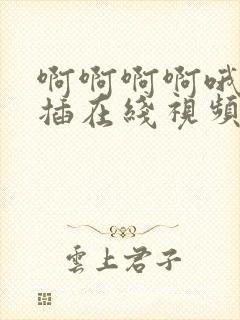 啊啊啊啊哦
插在綫視頻
雲上君子